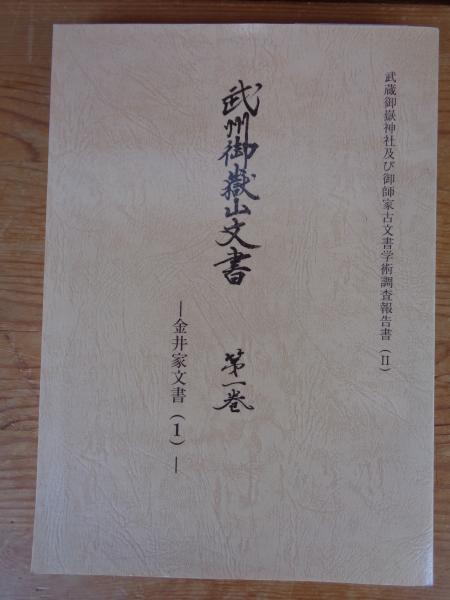 武蔵御嶽神社及び御師家古文書学術調査報告書(Ⅱ)
武州御嶽山文書 第一巻
―金井家文書(1)―